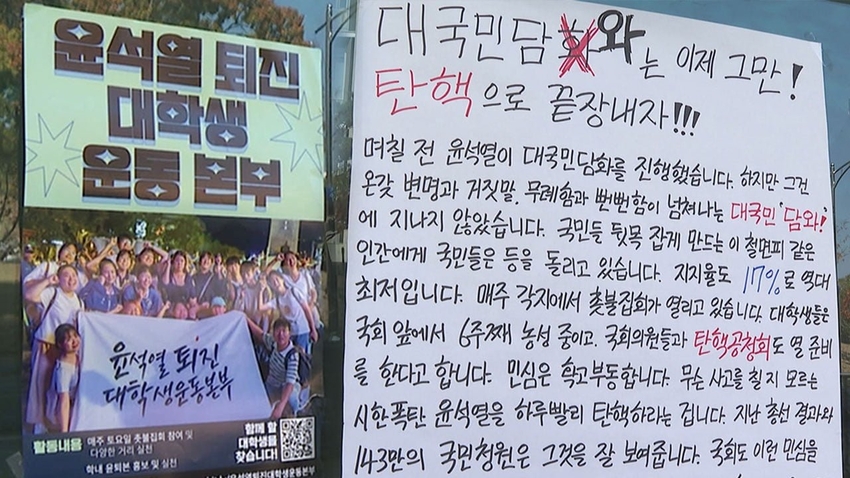 윤석열 퇴진
대학생
운동 본부
윤석열 퇴진
대학생운동본부
활동내용
매주 토요일 촛불집회 참여 및
다양한 거리 실천
학내 윤퇴본 홍보 및 실천
함께 할
대학생을
찾습니다!
윤석열퇴진대학생운동본부
대국민담화와는 이제 그만!
탄핵으로 끝장내자!!!
며칠 전 윤석열이 대국민담화를 진행했습니다. 하지만 그건
온갖 변명과 거짓말, 무례함과 뻔뻔함이 넘쳐나는 대국민 '담와!'
에 지나지 않았습니다. 국민들 뒷목 잡게 만드는 이 철면피 같은
인간에게 국민들은 등을 돌리고 있습니다. 지지율도 17%로 역대
최저입니다. 매주 각지에서 촛불집회가 열리고 있습니다. 대학생들은
국회 앞에서 6주째 농성 중이고, 국회의원들과 탄핵공청회도 열 준비
를 한다고 합니다. 민심은 확고부동합니다. 무슨 사고를 칠 지 모르는
시한폭탄 윤석열을 하루빨리 탄핵하라는 겁니다. 지난 총선 결과와
143만의 국민청원은 그것을 잘 보여줍니다. 국회도 이런 민심을